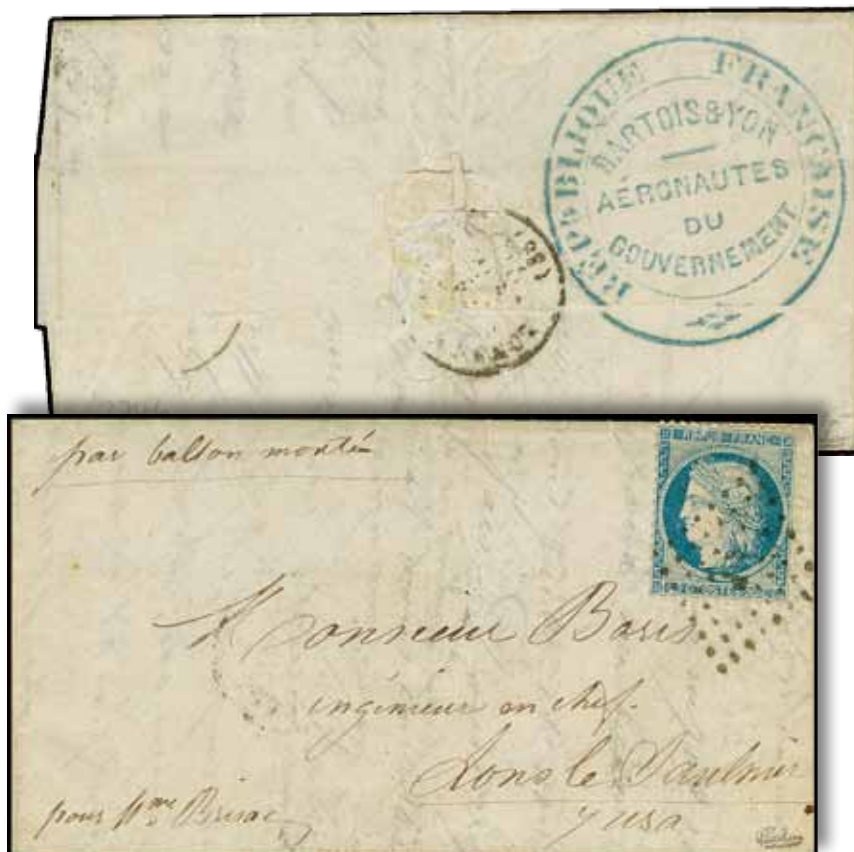 RÉPUBLIQUE FRANÇAISE
DARTOIS & YON
AÉRONAUTES
DU
GOUVERNEMENT
(38)
par ballon monté
REPUB FRANC
POSTES
Monsieur Boris
ingénieur en chef.
Lons le Saulnier
Jura
pour Mme Brisac